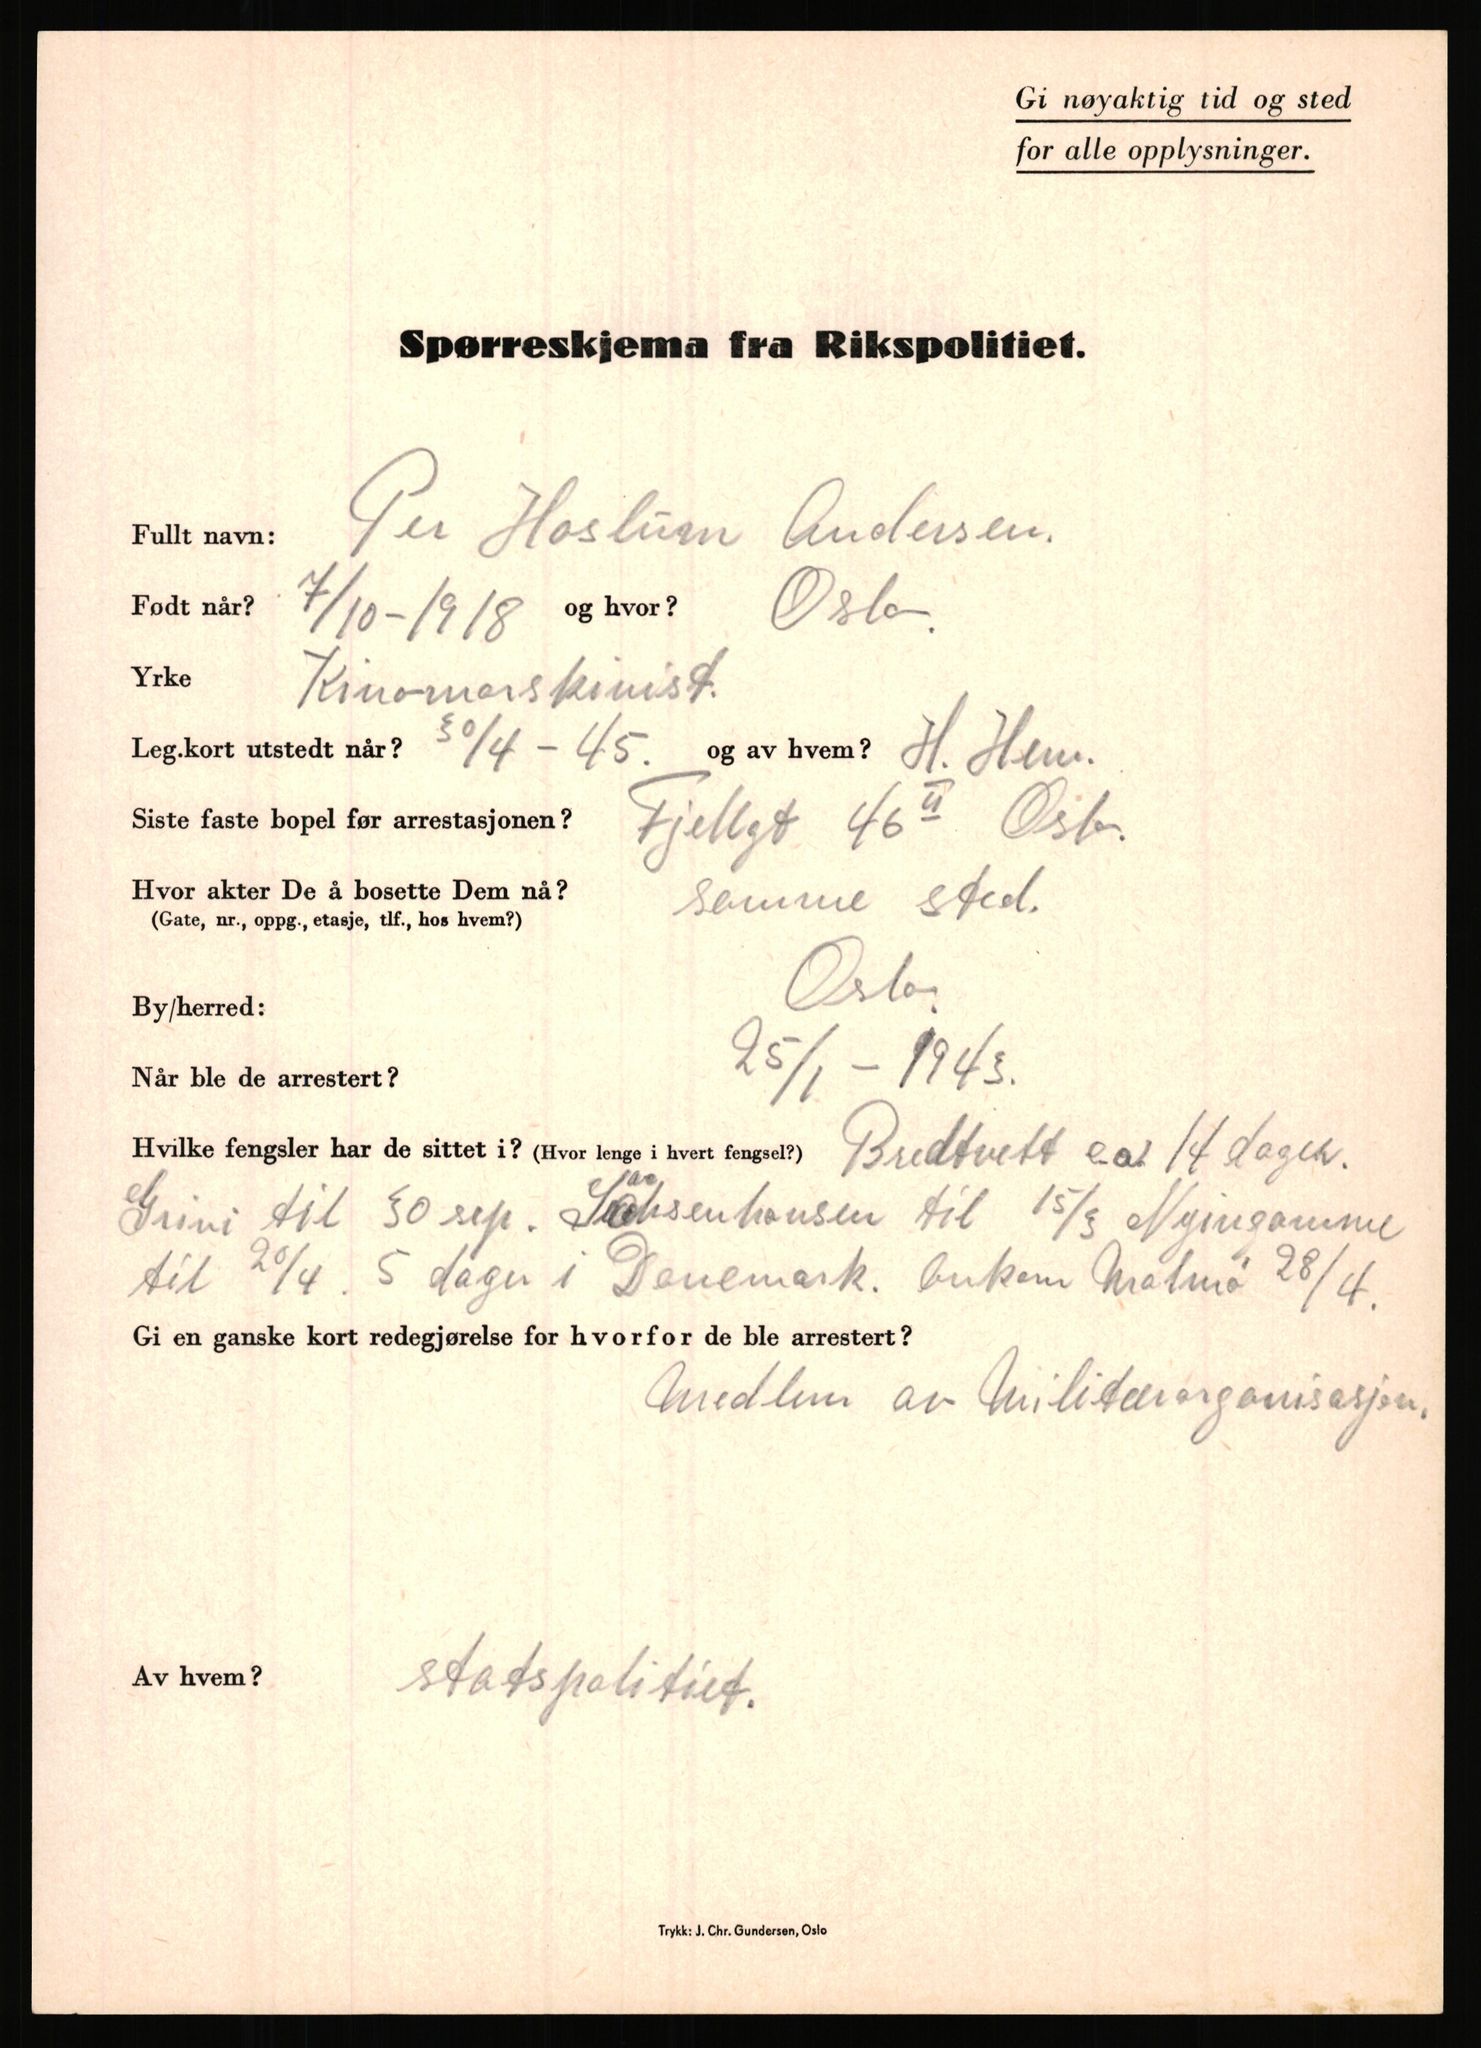 Gi nøyaktig tid og sted
for alle opplysninger.
Spørreskjema fra Rikspolitiet.
Fullt navn: Per Haslum Andersen.
Født når? 7/10-1918 og hvor? Oslo.
Yrke Kinomarskinist.
Leg.kort utstedt når? 30/4 - 45. og av hvem? H. Hem.
Siste faste bopel før arrestasjonen? Fjellgt 46 II Oslo.
Hvor akter De å bosette Dem nå? samme sted.
(Gate, nr., oppg., etasje, tlf., hos hvem?)
By/herred: Oslo.
Når ble de arrestert? 25/1 - 1943.
Hvilke fengsler har de sittet i? (Hvor lenge i hvert fengsel?) Bredtvett ca. 14 dager.
Grini til 30 sep. Sachsenhausen til 15/3 Nyingamme
til 20/4. 5 dager i Danemark. Ankom Malmö 28/4.
Gi en ganske kort redegjørelse for hvorfor de ble arrestert?
Medlem av Militærorganisasjon.
Av hvem? statspolitiet.
Trykk: J. Chr. Gundersen, Oslo